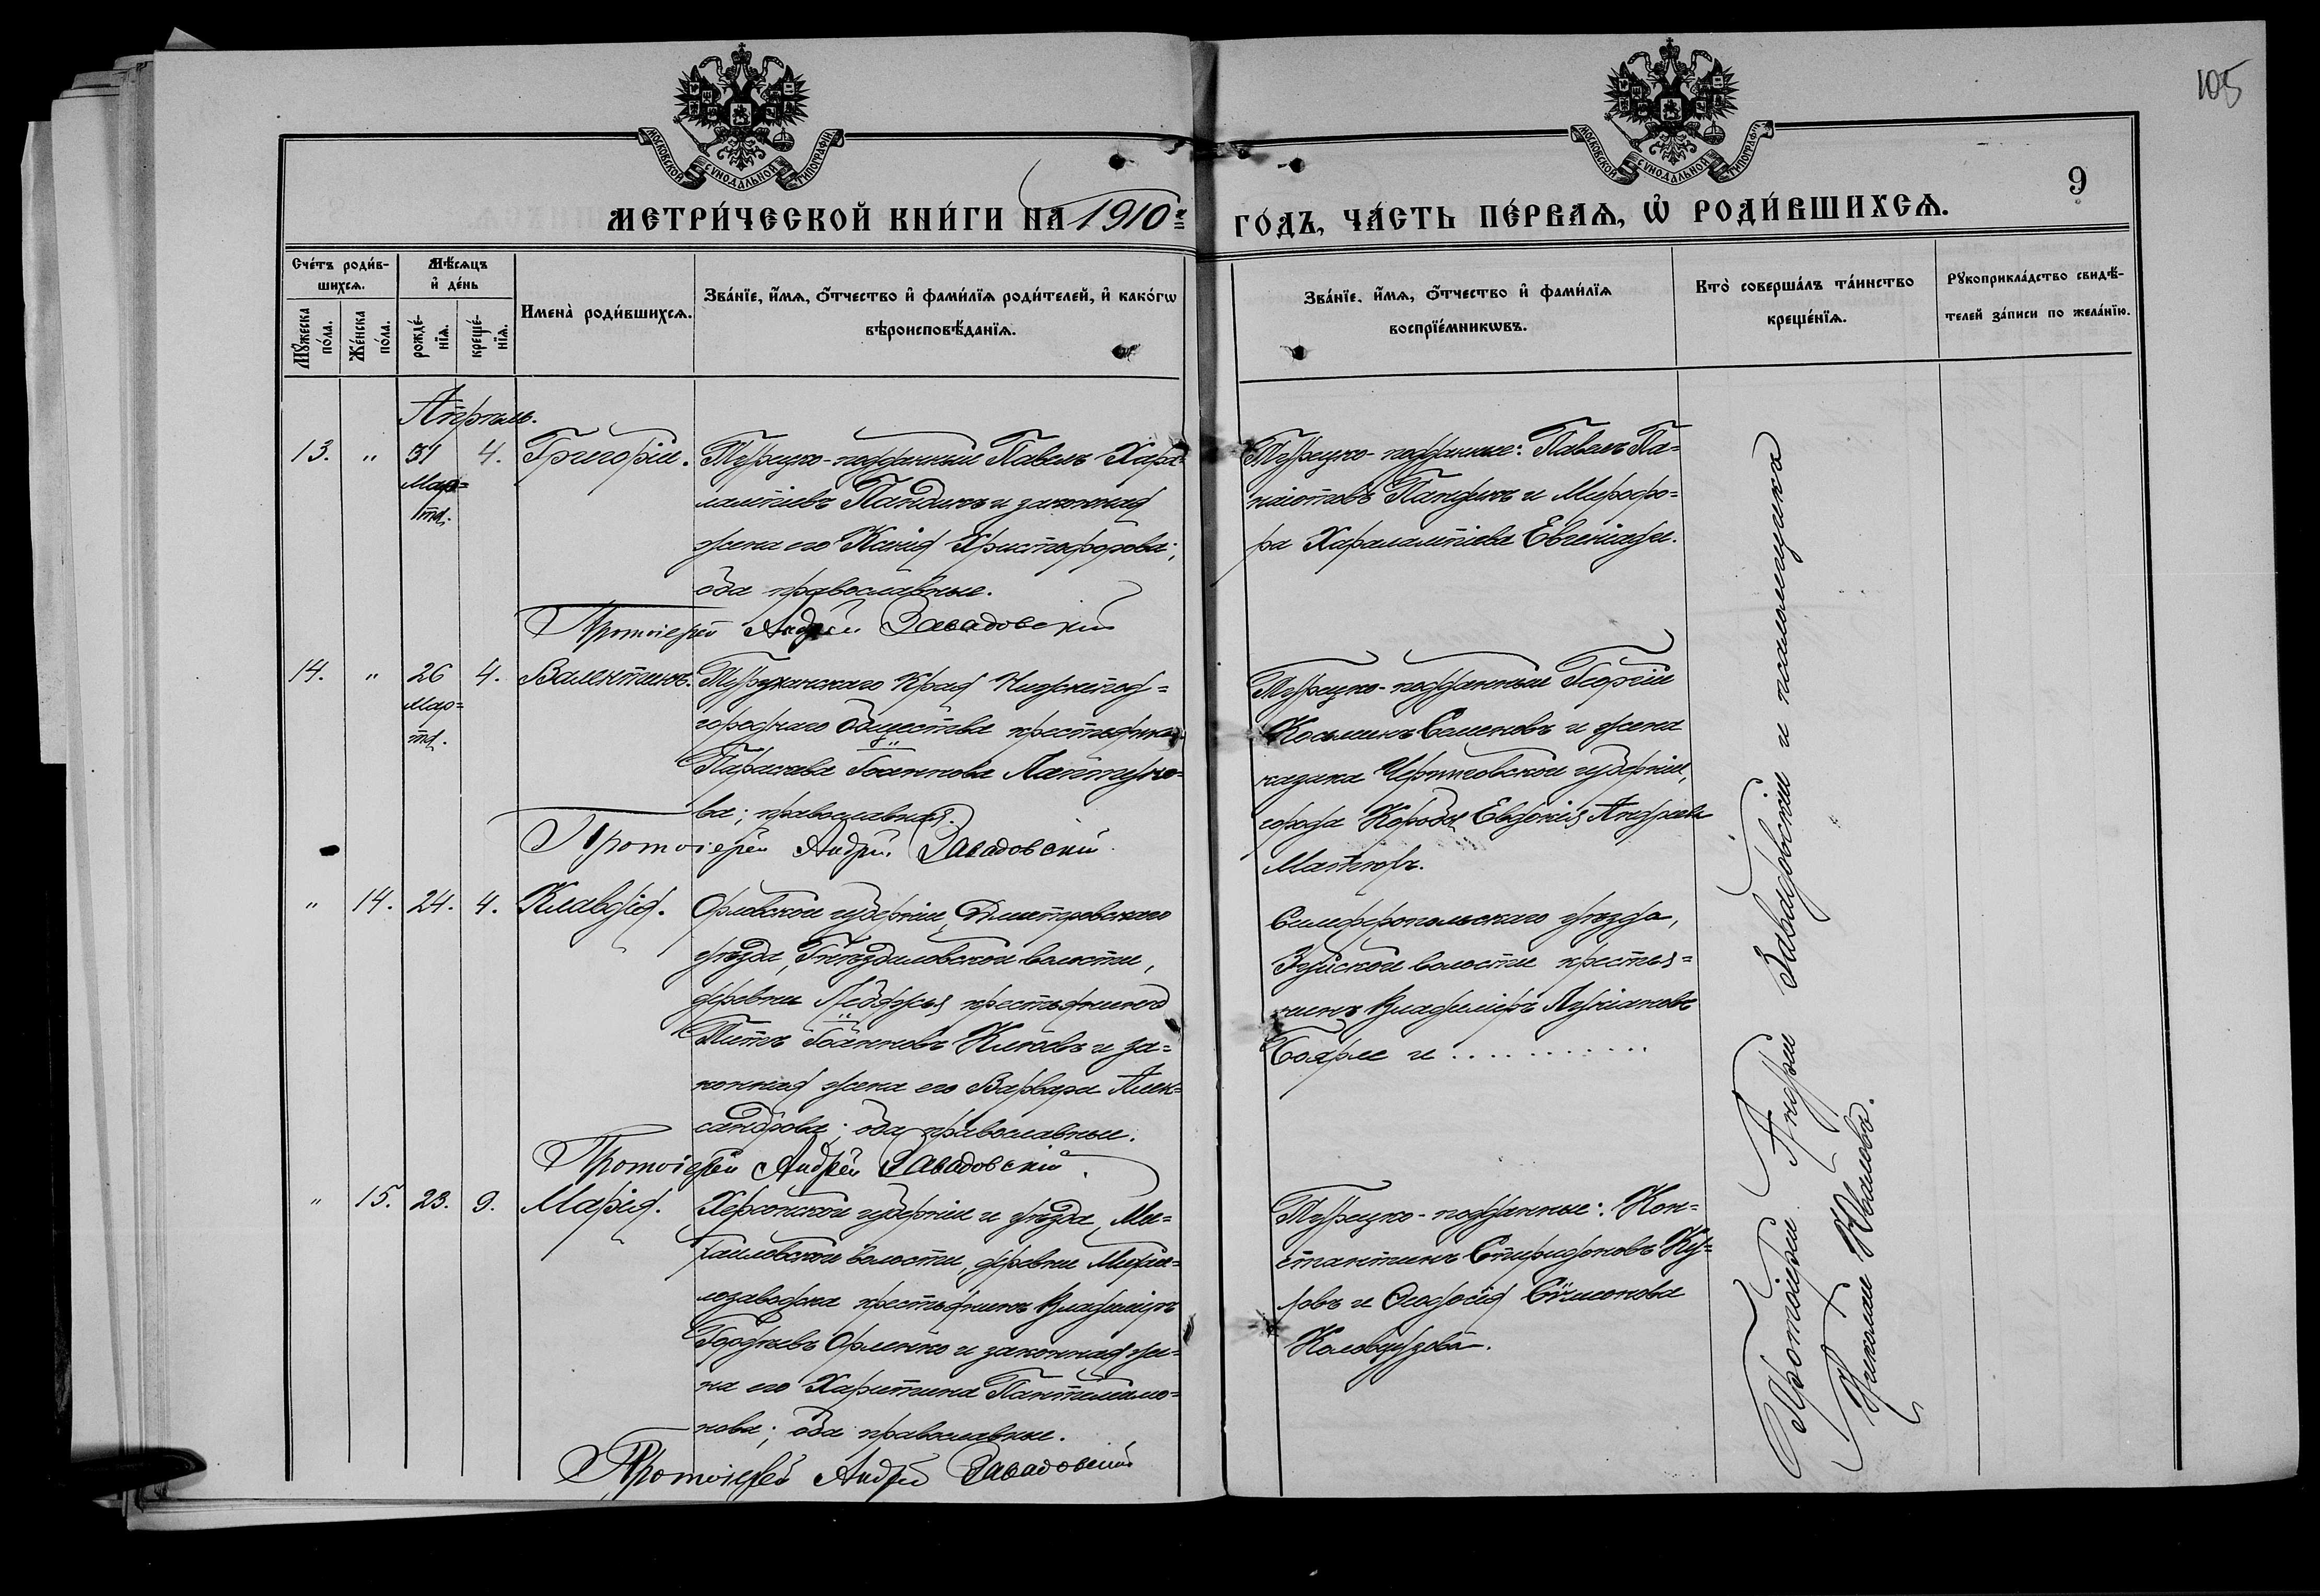 105
МОСКОВСКОЙ СѴНОДАЛЬНОЙ ТИПОГРАФІИ
МОСКОВСКОЙ СѴНОДАЛЬНОЙ ТИПОГРАФІИ
9
МЕТРИ́ЧЕСКОЙ КНИ́ГИ НА 1910 г.
ГО́ДЪ, ЧА́СТЬ ПЕ́РВАѦ, Ѡ҆ РОДИ́ВШИХСѦ.
Сче́тъ роди́в-
шихсѧ.
Мꙋ́жеска по́ла.
Же́нска по́ла.
Мѣ́сѧцъ
и҆ де́нь
рожде́-
нїѧ.
креще́-
нїѧ.
Имена̀ роди́вшихсѧ.
Зва́нїе, и҆́мѧ, ѻ҆́тчество и҆ фами́лїѧ роди́телей, и҆ како́гѡ
вѣроисповѣ́данїѧ.
Зва́нїе, и҆́мѧ, ѻ҆́тчество и҆ фами́лїѧ
воспрїе́мникѡвъ.
Кто̀ соверша́лъ та́инство
креще́нїѧ.
Рꙋкоприкла́дство свидѣ́-
телей за́писи по жела́нїю.
Апрѣль.
13. " 31 4. Григорій. Турецко-подданный Павелъ Хара-
Мар=
та.
лампіевъ Пандинъ и законная
жена его Кикія Христофорова;
оба православные.
Протоіерей Андрей Завадовскій
Турецко-подданные: Павелъ Па-
наіотовъ Пандинъ и Мирофо=
ра Харалампіева Евгеніади.
14. " 26 4. Валентинъ. Туруханскаго края Нижнепод=
Мар=
та.
городнаго Общества крестьянка
Параскева Іоаннова
ва; православная.
Протоіерей Андрей Завадовскій
Турецко-подданный Георгій
Косьминъ Семеновъ и жена
казака Черниговской губерніи,
города Евдокія
15
" 14. 24. 4. Клавдія. Орловской губерніи, Дмитровскаго
уѣзда, Гнѣздиловской волости,
деревни крестьянинъ
Титъ Іоанновъ и за=
конная жена его Варвара Алек=
сандрова; оба православные.
Протоіерей Андрей Завадовскій
Симферопольскаго уѣзда,
Зуйской волости крестья=
нинъ Владиміръ Лукіановъ
и . . . . . . . . . . .
" 15. 23. 9. Марія. Херсонской губерніи и уѣзда, Ми=
хайловской волости, деревни Михай=
лозаводска крестьянинъ Владиміръ
Гордѣевъ Орленко и законная же=
на его Харитина Пантелеимо=
нова; оба православные.
Протоіерей Андрей Завадовскій
Турецко-подданные: Кон=
стантинъ Спиридоновъ
и Ѳеодосія Сѵмеонова
Протоіерей Андрей Завадовскій и псаломщикъ
Николай Иваловъ.